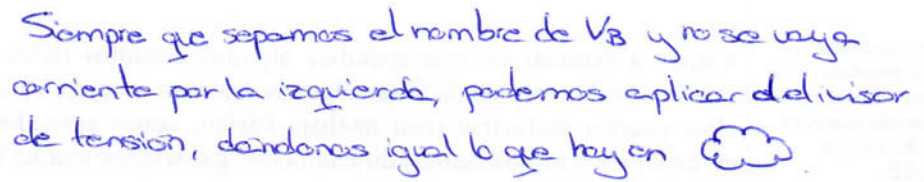 Siempre que sepamos el nombre de VB y no se vaya
corriente por la izquierda, podemos aplicar el divisor
de tensión, dándonos igual lo que hay en